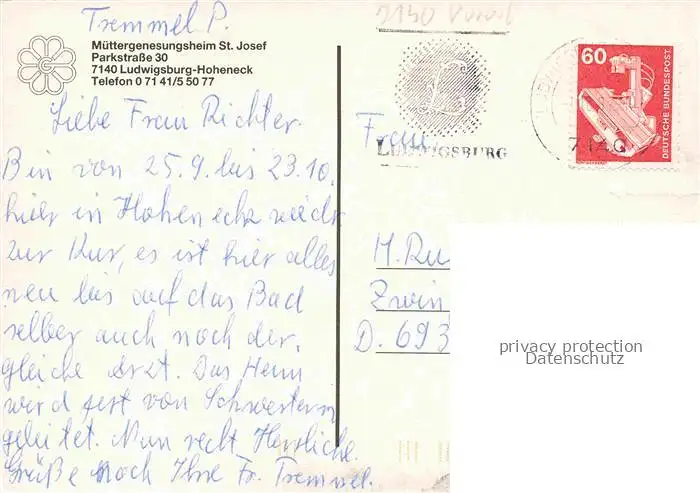 Tremmel P.
Müttergenesungsheim St. Josef
Parkstraße 30
7140 Ludwigsburg-Hoheneck
Telefon 0 71 41/5 50 77
Liebe Frau Richter.
Bin von 25.9. bis 23.10.
hier in Hoheneck wieder
zur Kur, es ist hier alles
neu bis auf das Bad
selber auch noch der
gleiche Arzt. Das Heim
wird jest von Schwestern
geleitet. Nun recht Herzliche.
Grüße Noch Ihre Fr. Tremmel.
7140
LUDWIGSBURG
60
DEUTSCHE BUNDESPOST
7140
Frau
H. Ru
Zwin
D. 693
privacy protection
Datenschutz